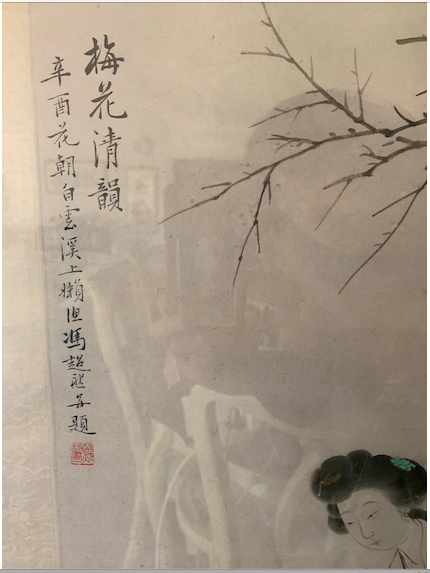 梅花清韻
辛酉花朝白雲溪上懶但馮超然并題